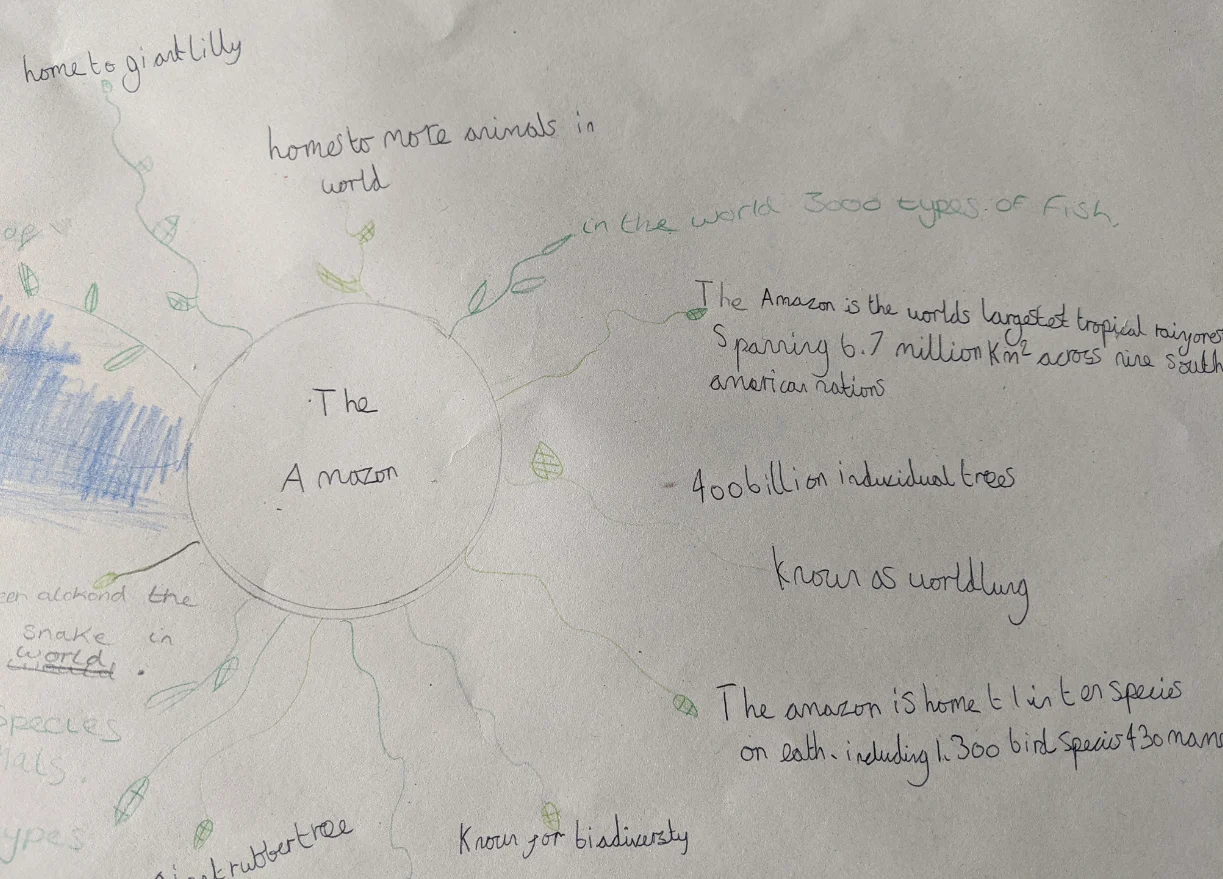 home to giant lilly
homes to more animals in
world
in the world 3000 types of Fish,
The Amazon is the worlds largestet tropical
Spanning 6.7 million Km² across nine South
american nations
The
Amazon
400 billion individual trees
Known as worldlung
the
snake in
world.
The amazon is home t 1 in ten species
on eath. including 1.300 bird species 430
species
ypes
rubber tree
Known for biadiversty